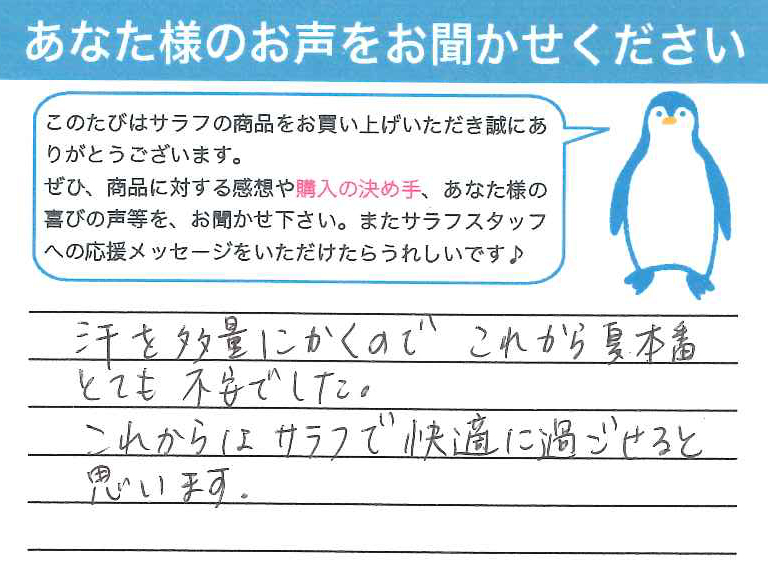 あなた様のお声をお聞かせください
このたびはサラフの商品をお買い上げいただき誠にあ
りがとうございます。
ぜひ、商品に対する感想や購入の決め手、あなた様の
喜びの声等を、お聞かせ下さい。またサラフスタッフ
への応援メッセージをいただけたらうれしいです♪
汗を多量にかくので これから夏本番
とても 不安でした。
これからは サラフで快適に過ごせると
思います。